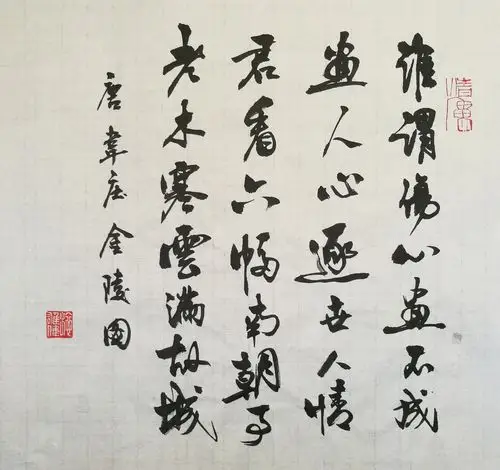 誰謂傷心畫不成
畫人心逐世人情
君看六幅南朝事
老木寒雲滿故城
唐韋庄金陵圖